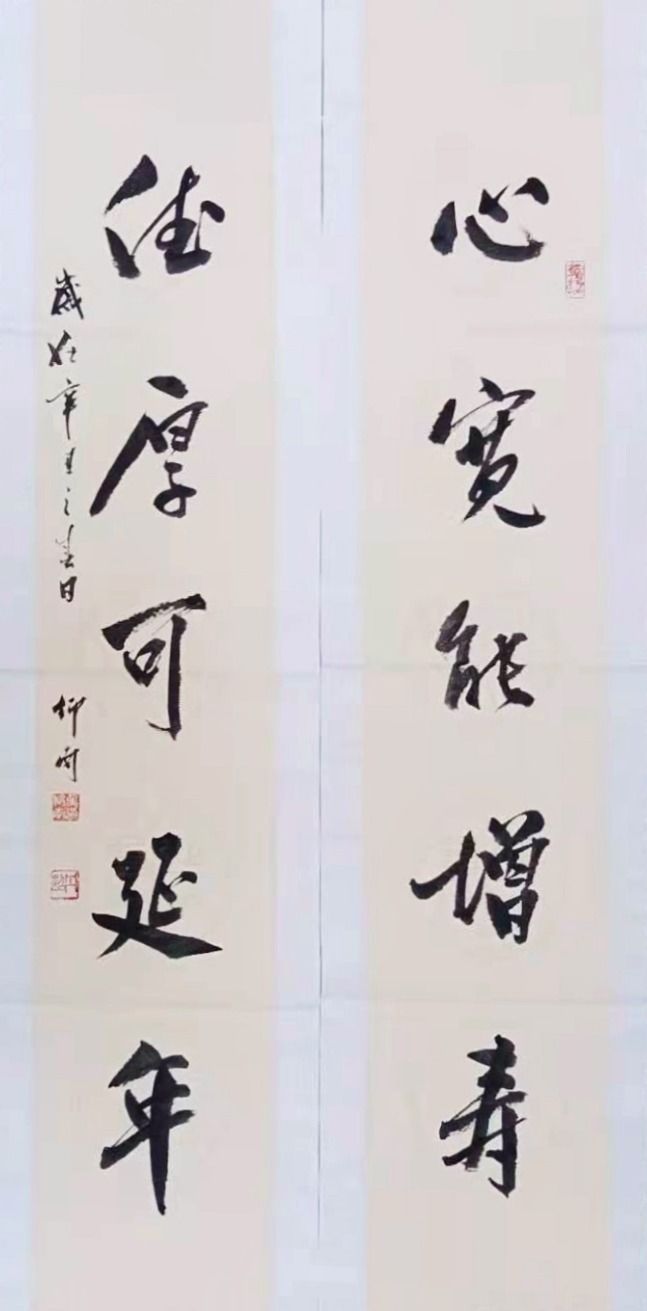 心宽能增寿
德厚可延年
岁在辛丑之春日